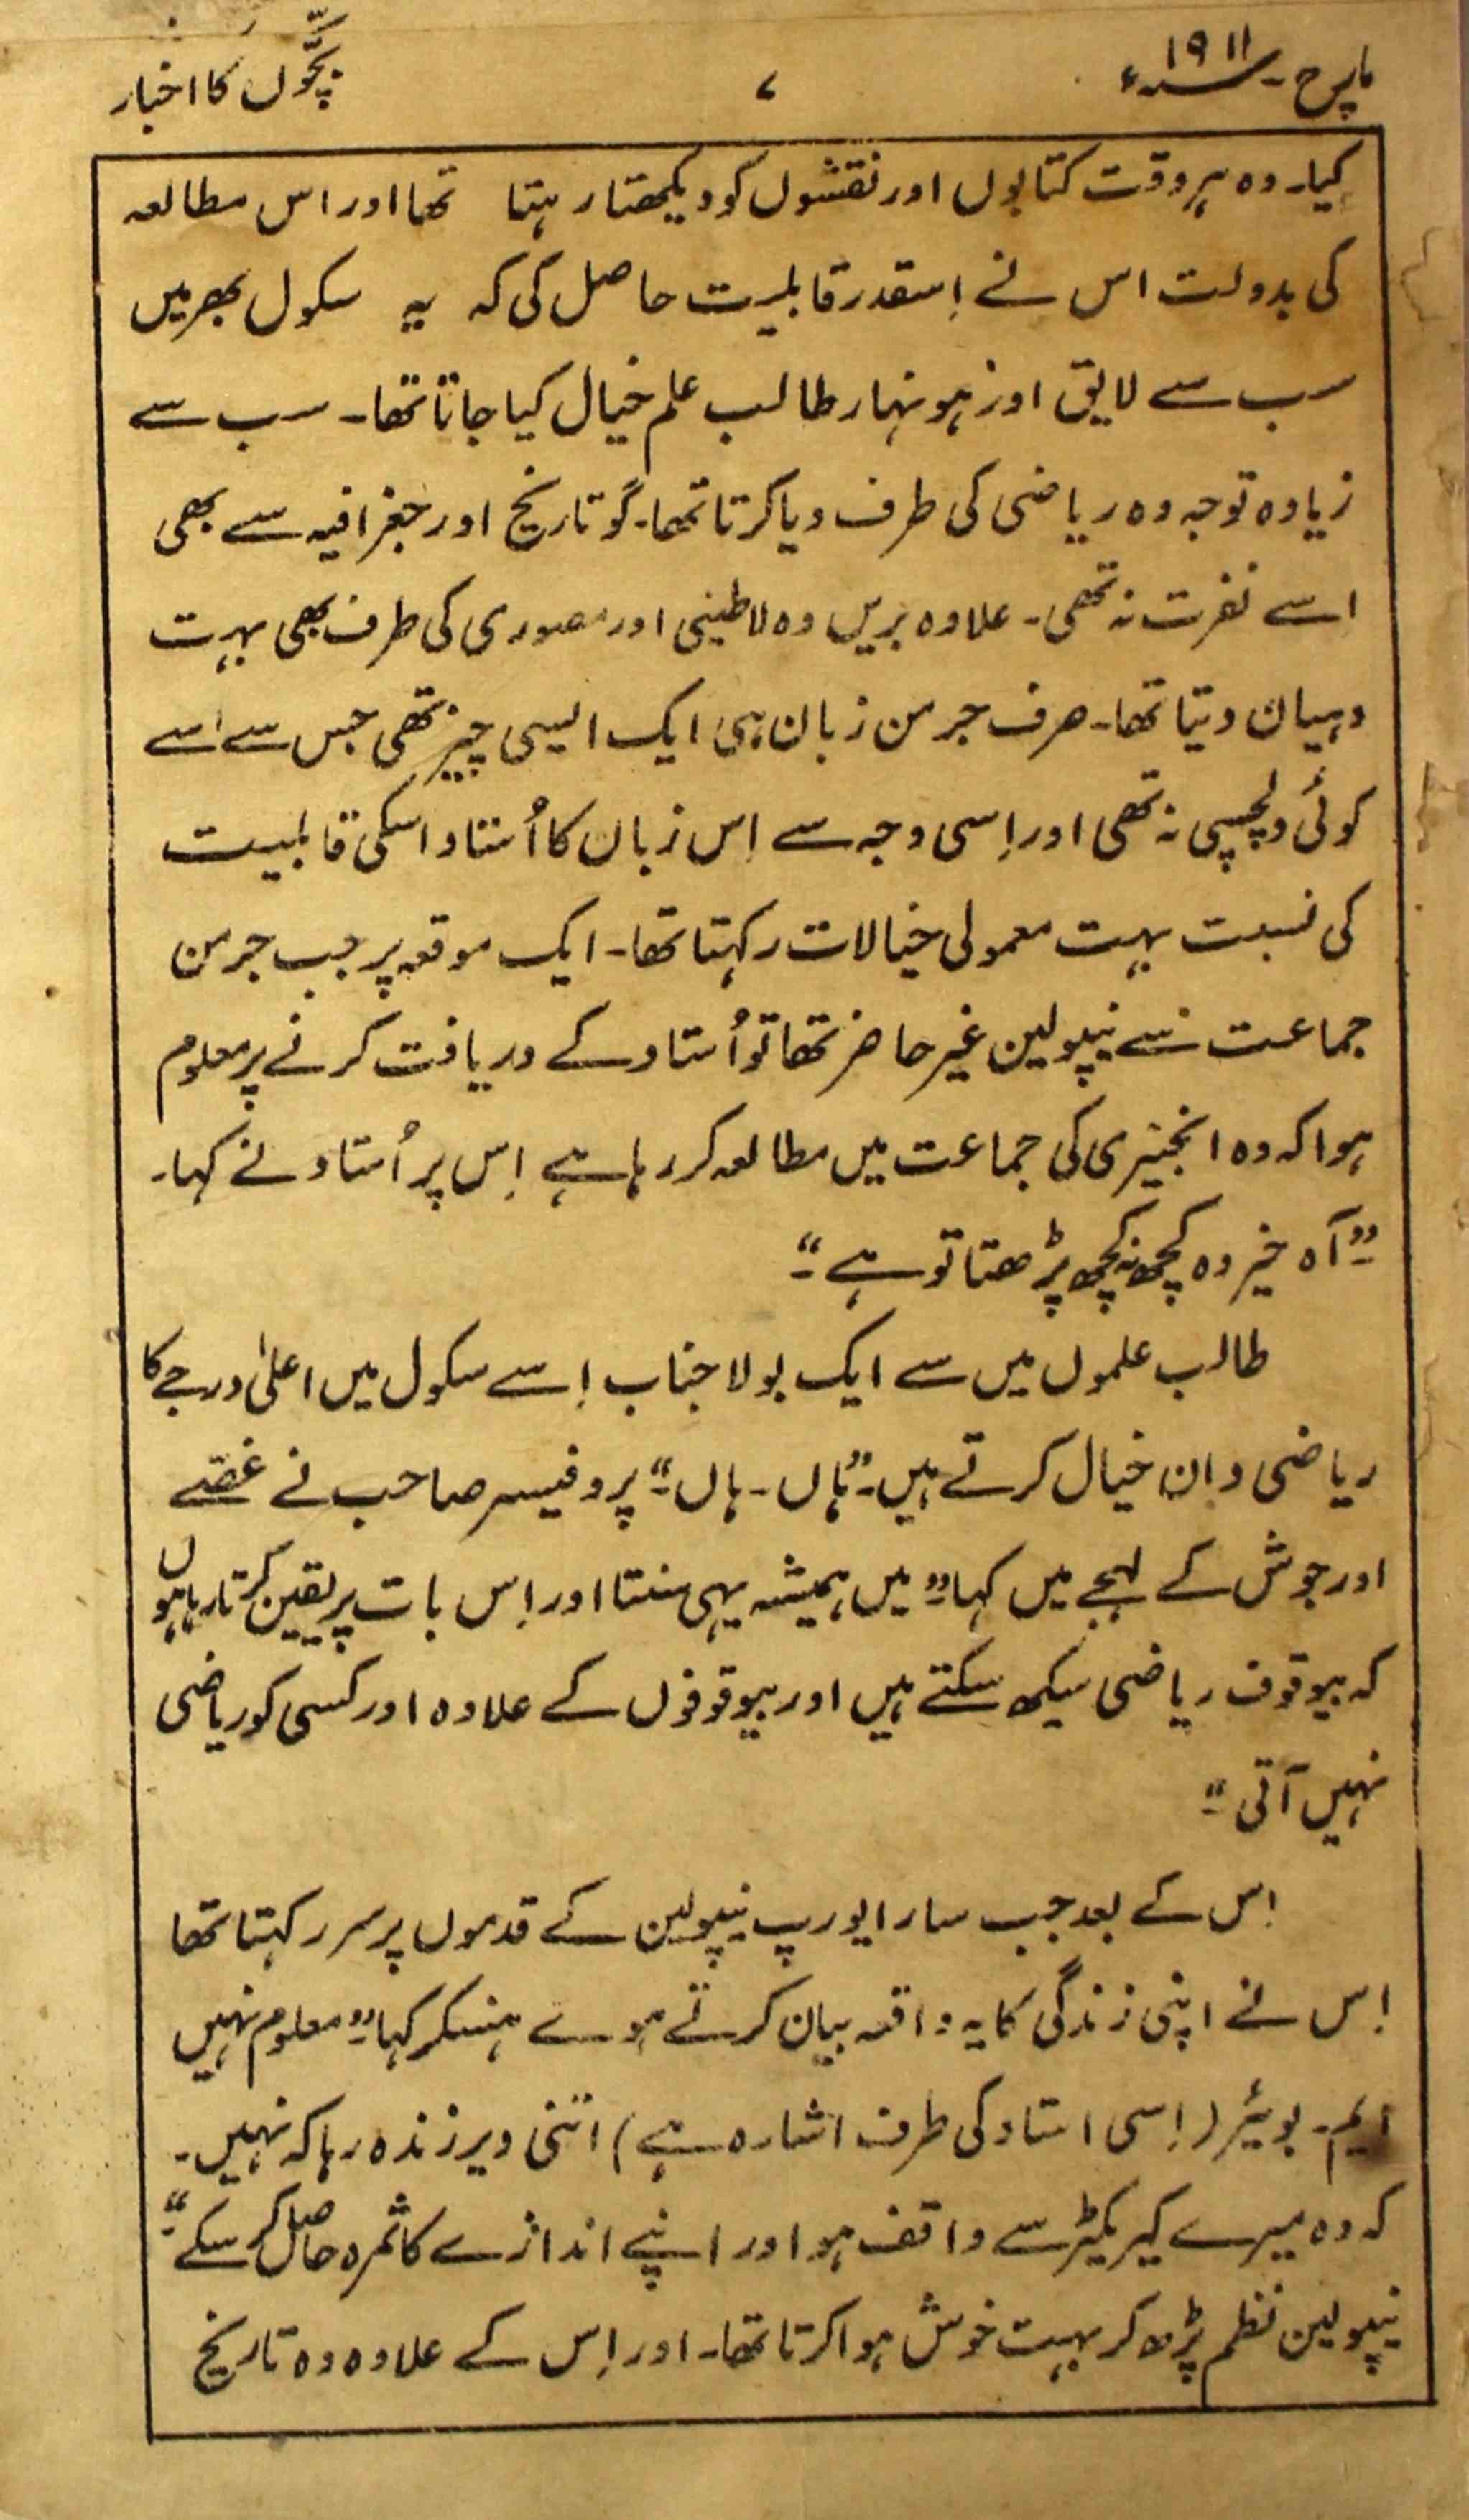 مارچ - سنہ ۱۹۱۱ء
۷
بچّوں کا اخبار
کیا۔ وہ ہر وقت کتابوں اور نقشوں کو دیکھتا رہتا تھا اور اس مطالعہ
کی بدولت اس نے اِسقدر قابلیت حاصل کی کہ یہ سکول بھر میں
سب سے لایق اور ہونہار طالب علم خیال کیا جاتا تھا۔ سب سے
زیادہ توجہ وہ ریاضی کی طرف دیا کرتا تھا۔ گو تاریخ اور جغرافیہ سے بھی
اسے نفرت نہ تھی۔ علاوہ بریں وہ لاطینی اور مصوری کی طرف بھی بہت
دہیان دیتا تھا۔ صرف جرمن زبان ہی ایک ایسی چیز تھی جس سے اسے
کوئی دلچسپی نہ تھی اور اِسی وجہ سے اِس زبان کا اُستاد اسکی قابلیت
کی نسبت بہت معمولی خیالات رکہتا تھا۔ ایک موقعہ پر جب جرمن
جماعت سے نیپولین غیر حاضر تھا تو اُستاد کے دریافت کرنے پر معلوم
ہوا کہ وہ انجنیری کی جماعت میں مطالعہ کر رہا ہے اِس پر اُستاد نے کہا۔
”آہ خیر وہ کچھ نہ کچھ پڑھتا تو ہے“۔
طالب علموں میں سے ایک بولا جناب اِسے سکول میں اعلیٰ درجے کا
ریاضی دان خیال کرتے ہیں۔ ”ہاں۔ ہاں“۔ پروفیسر صاحب نے غصّے
اور جوش کے لہجے میں کہا ”میں ہمیشہ یہی سنتا اور اِس بات پر یقین کرتا رہا ہوں
کہ بیوقوف ریاضی سیکھ سکتے ہیں اور بیوقوفوں کے علاوہ اور کسی کو ریاضی
نہیں آتی“۔
اِس کے بعد جب سارا یورپ نیپولین کے قدموں پر سر رکہتا تھا
اِس نے اپنی زندگی کا یہ واقعہ بیان کرتے ہوے ہنسکر کہا ”معلوم نہیں
ایم۔ بوئیر (اِسی استاد کی طرف اشارہ ہے) اتنی دیر زندہ رہا کہ نہیں۔
کہ وہ میرے کیریکٹر سے واقف ہو اور اپنے اندازے کا ثمرہ حاصل کر سکے“۔
نیپولین نظم پڑھ کر بہت خوش ہوا کرتا تھا۔ اور اِس کے علاوہ وہ تاریخ